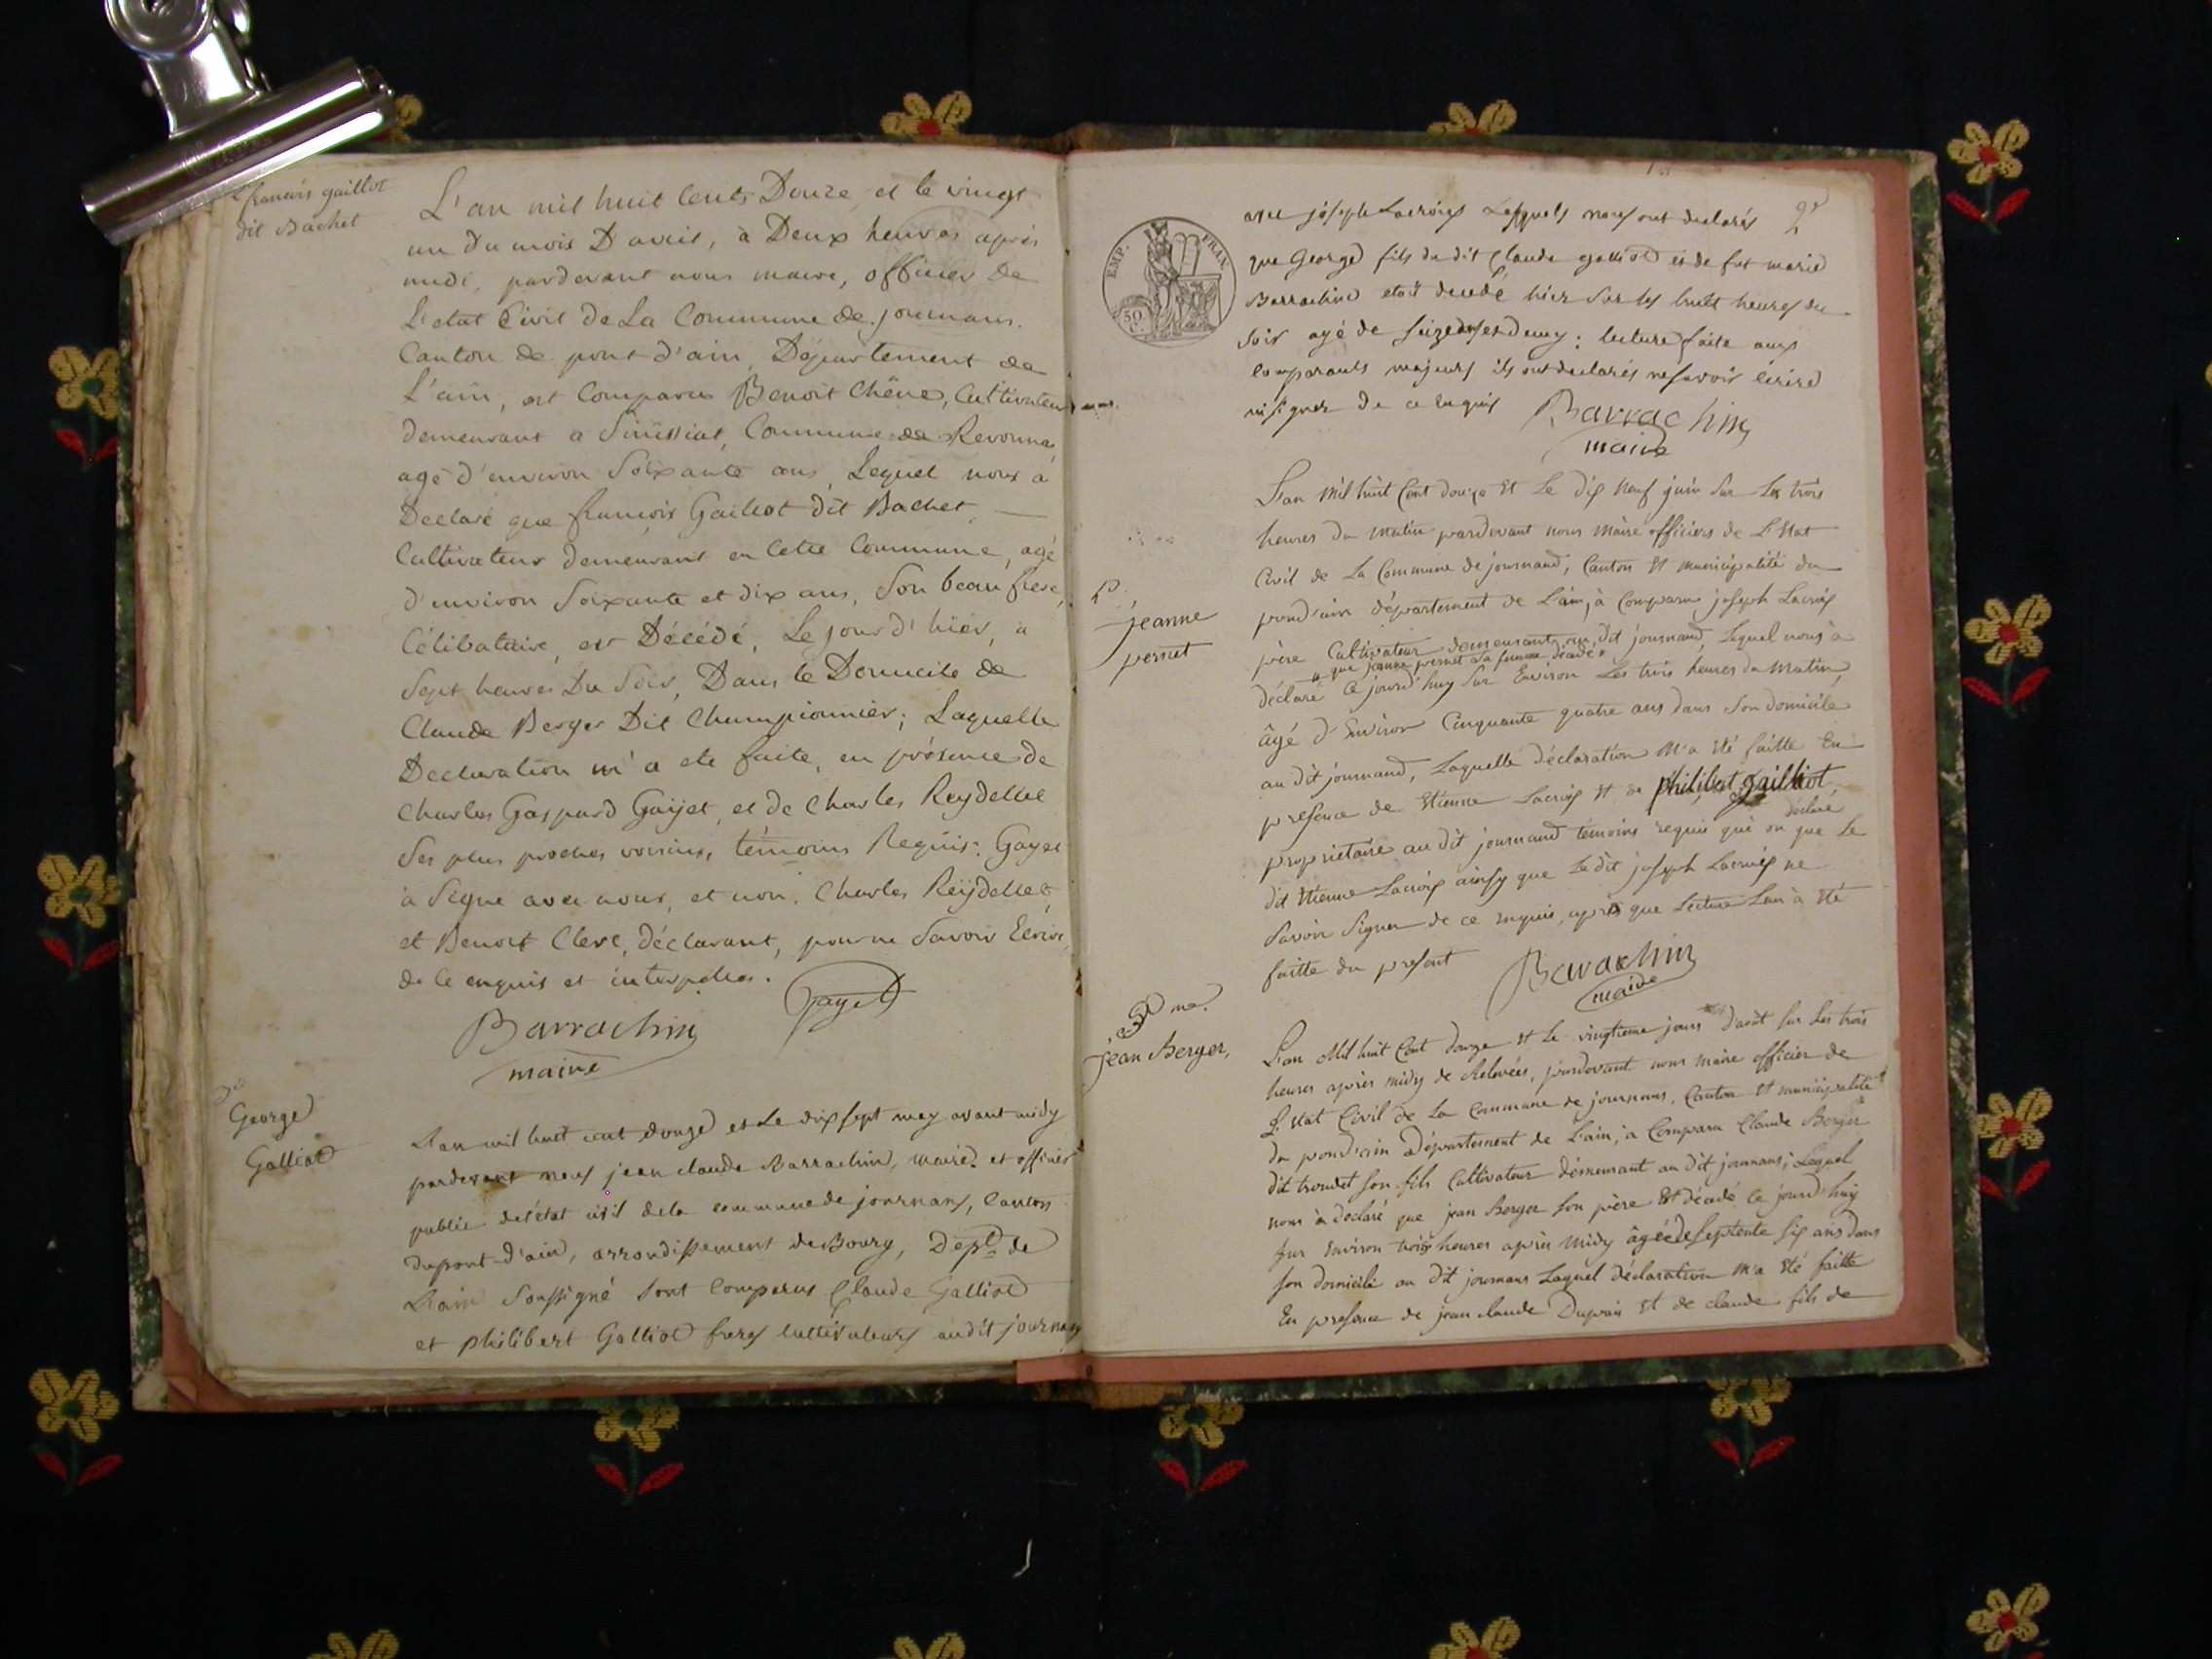 françois gaillot
dit Bachet
L'an mil huit Cents Douze, et le vingt
un du mois D'avril, à Deux heures après
midi, pardevant nous maire, officier de
L'etat Civil de La Commune de journans.
Canton de pont d'ain, Département de
L'ain, est Comparu Benoit Chêne, Cultivateur
demeurant a Commune de Revonnas,
agé d'environ Soixante ans, Lequel nous a
Declaré que françois Gaillot dit Bachet,
Cultivateur demeurant en Cette Commune, agé
d'environ Soixante et dix ans, Son beau frere,
Célibataire, est Décédé, Le jour d'hier, à
Sept heures Du Soir, Dans le Domicile de
Claude Berger Dit Championnier; Laquelle
Declaration m'a ete faite, en présence de
Charles Gaspard Gayet, et de Charles Reydellet
Ses plus proches voisins, témoins Requis: Gayet
à Signé avec nous, et non, Charles Reÿdellet,
et Benoit déclarant, pour ne Savoir Ecrire,
de Ce enquis et interpellés.
Gayet
Barrachin
maire
George
Galliod
L'an mil huit cent douze et Le dix sept may avant midy
pardevant nous jean claude Barrachin, maire et officier
public de l'état civil de la commune de journans, Canton
du pont-d'ain, arrondissement de Bourg, Dépt. de
L'ain Soussigné Sont Comparus Claude Galliod
et philibert Galliod freres cultivateurs audit journans
EMP. FRAN.
50 C.
2e
avec joseph Lacroix Lesquels nous ont declarés
que George fils du dit Claude galliod et de fut marie
Barrachin etoit decedé hier Sur les huit heures du
Soir agé de Seize et demy: lecture faite aux
comparants majeurs ils ont declarés ne Savoir Ecrire
ni signer de ce Enquis Barrachin
maire
jeanne
pernet
L'an Mil huit Cent douze Et Le dix Neuf juin Sur Les trois
heures du Matin pardevant nous Maire officiers de L'Etat
Civil de La Commune de journand, Canton Et municipalité du
pond'ain département de L'ain, à Comparu joseph Lacroix
père Cultivateur demeurant au dit journand, Lequel nous à
que jeanne pernet Sa femme décédé
déclaré Ce jourd'huy Sur Environ Les trois heures du Matin,
âgé d'Environ Cinquante quatre ans dans Son domicile
au dit journand, Laquelle déclaration M'a Eté faitte En
presence de Etienne Lacroix Et de philibert gailliot,
déclaré
propriétaire au dit journand témoins requis qui on que Le
dit Etienne Lacroix ainsy que Le dit joseph Lacroix ne
Savoir Signer de ce enquis, après que Lecture Leur à Eté
faitte du present Barrachin
maire
jean Berger,
L'an Mil huit Cent douze Et Le vingtieme jours d'août Sur Les trois
heures après midy de Relevées, pardevant nous maire officier de
L'Etat Civil de La Commune de journans, Canton Et municipalité
du pond'ain Département de L'ain, à Comparu Claude Berger
dit trontet Son fils Cultivateur demeurant au dit journans; Lequel
nous à déclaré que jean Berger Son père Est décédé Ce jourd'huy
Sur Environ trois heures après Midy âgé de Septente Six ans dans
Son domicile au dit journans Laquel déclaration M'a Eté faitte
En presence de jean claude Et de claude fils de